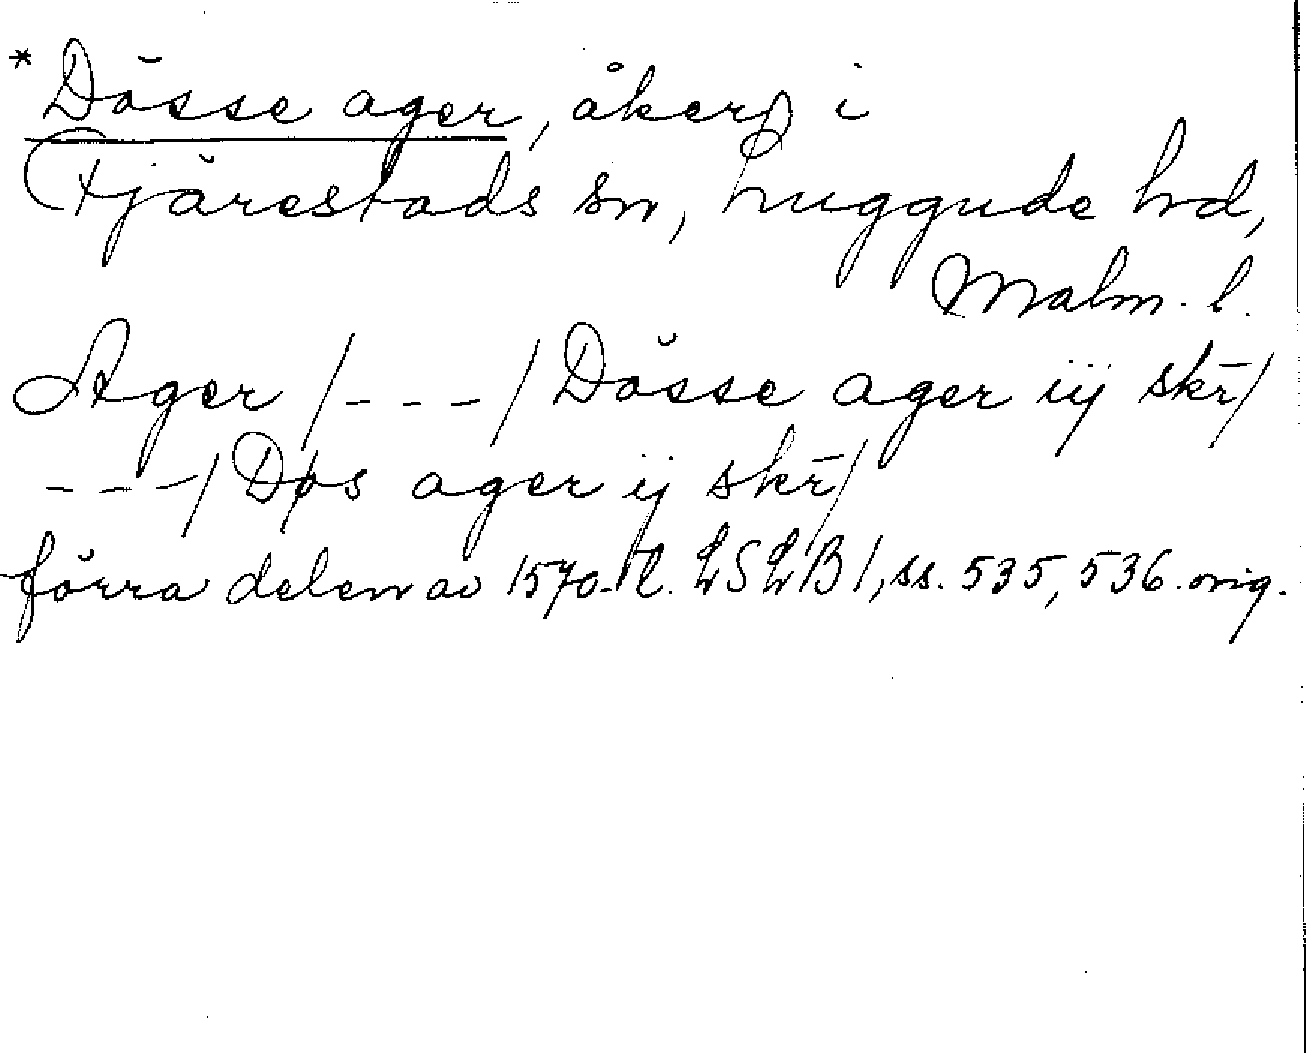 * Dösse ager, åker i
Fjärestads sn, Luggude hd,
Malm. l.
Ager /---/ Dösse ager iij skr̄/
---/ Døs ager ij skr̄/
förra delen av 1570-t. LSLB 1, ss. 535, 536. orig.